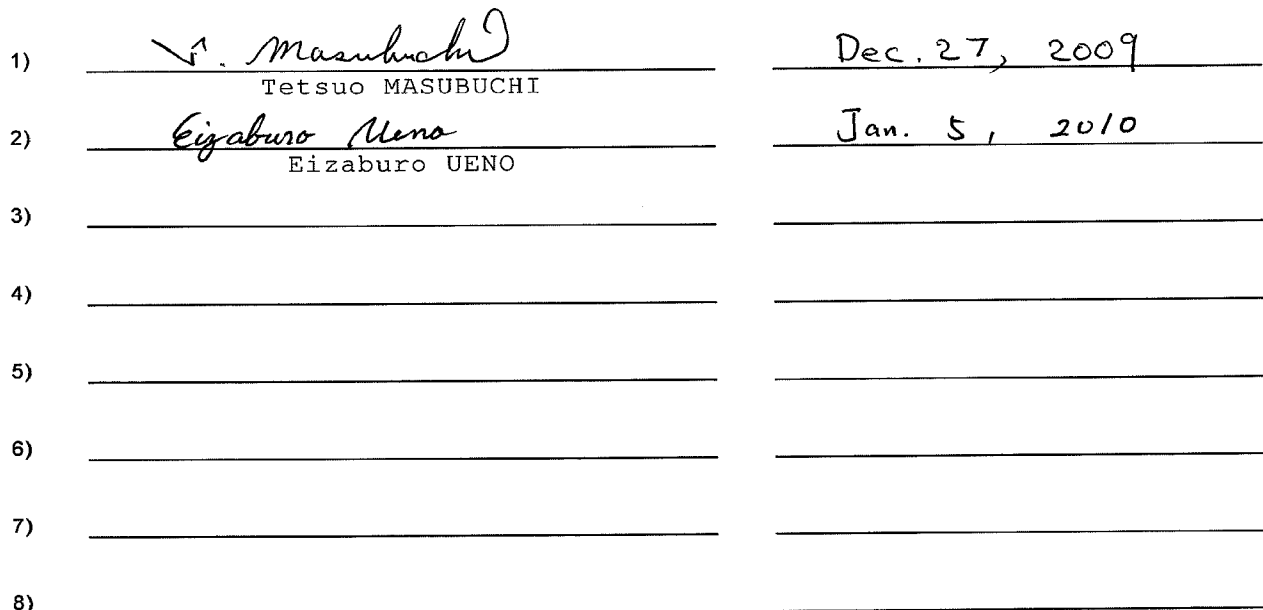 1) T. Masubuchi Dec. 27, 2009
Tetsuo MASUBUCHI
2) Eizaburo Ueno Jan. 5, 2010
Eizaburo UENO
3)
4)
5)
6)
7)
8)